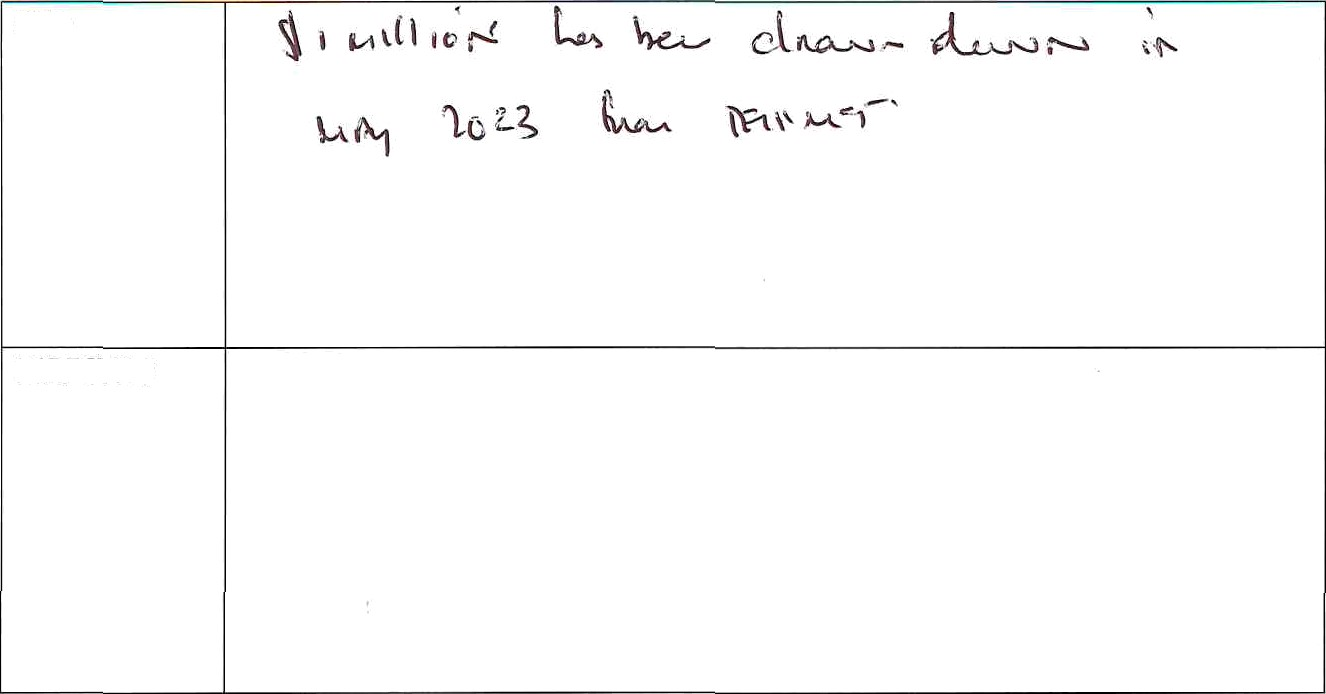 $1 million has been drawn down in
May 2023 from